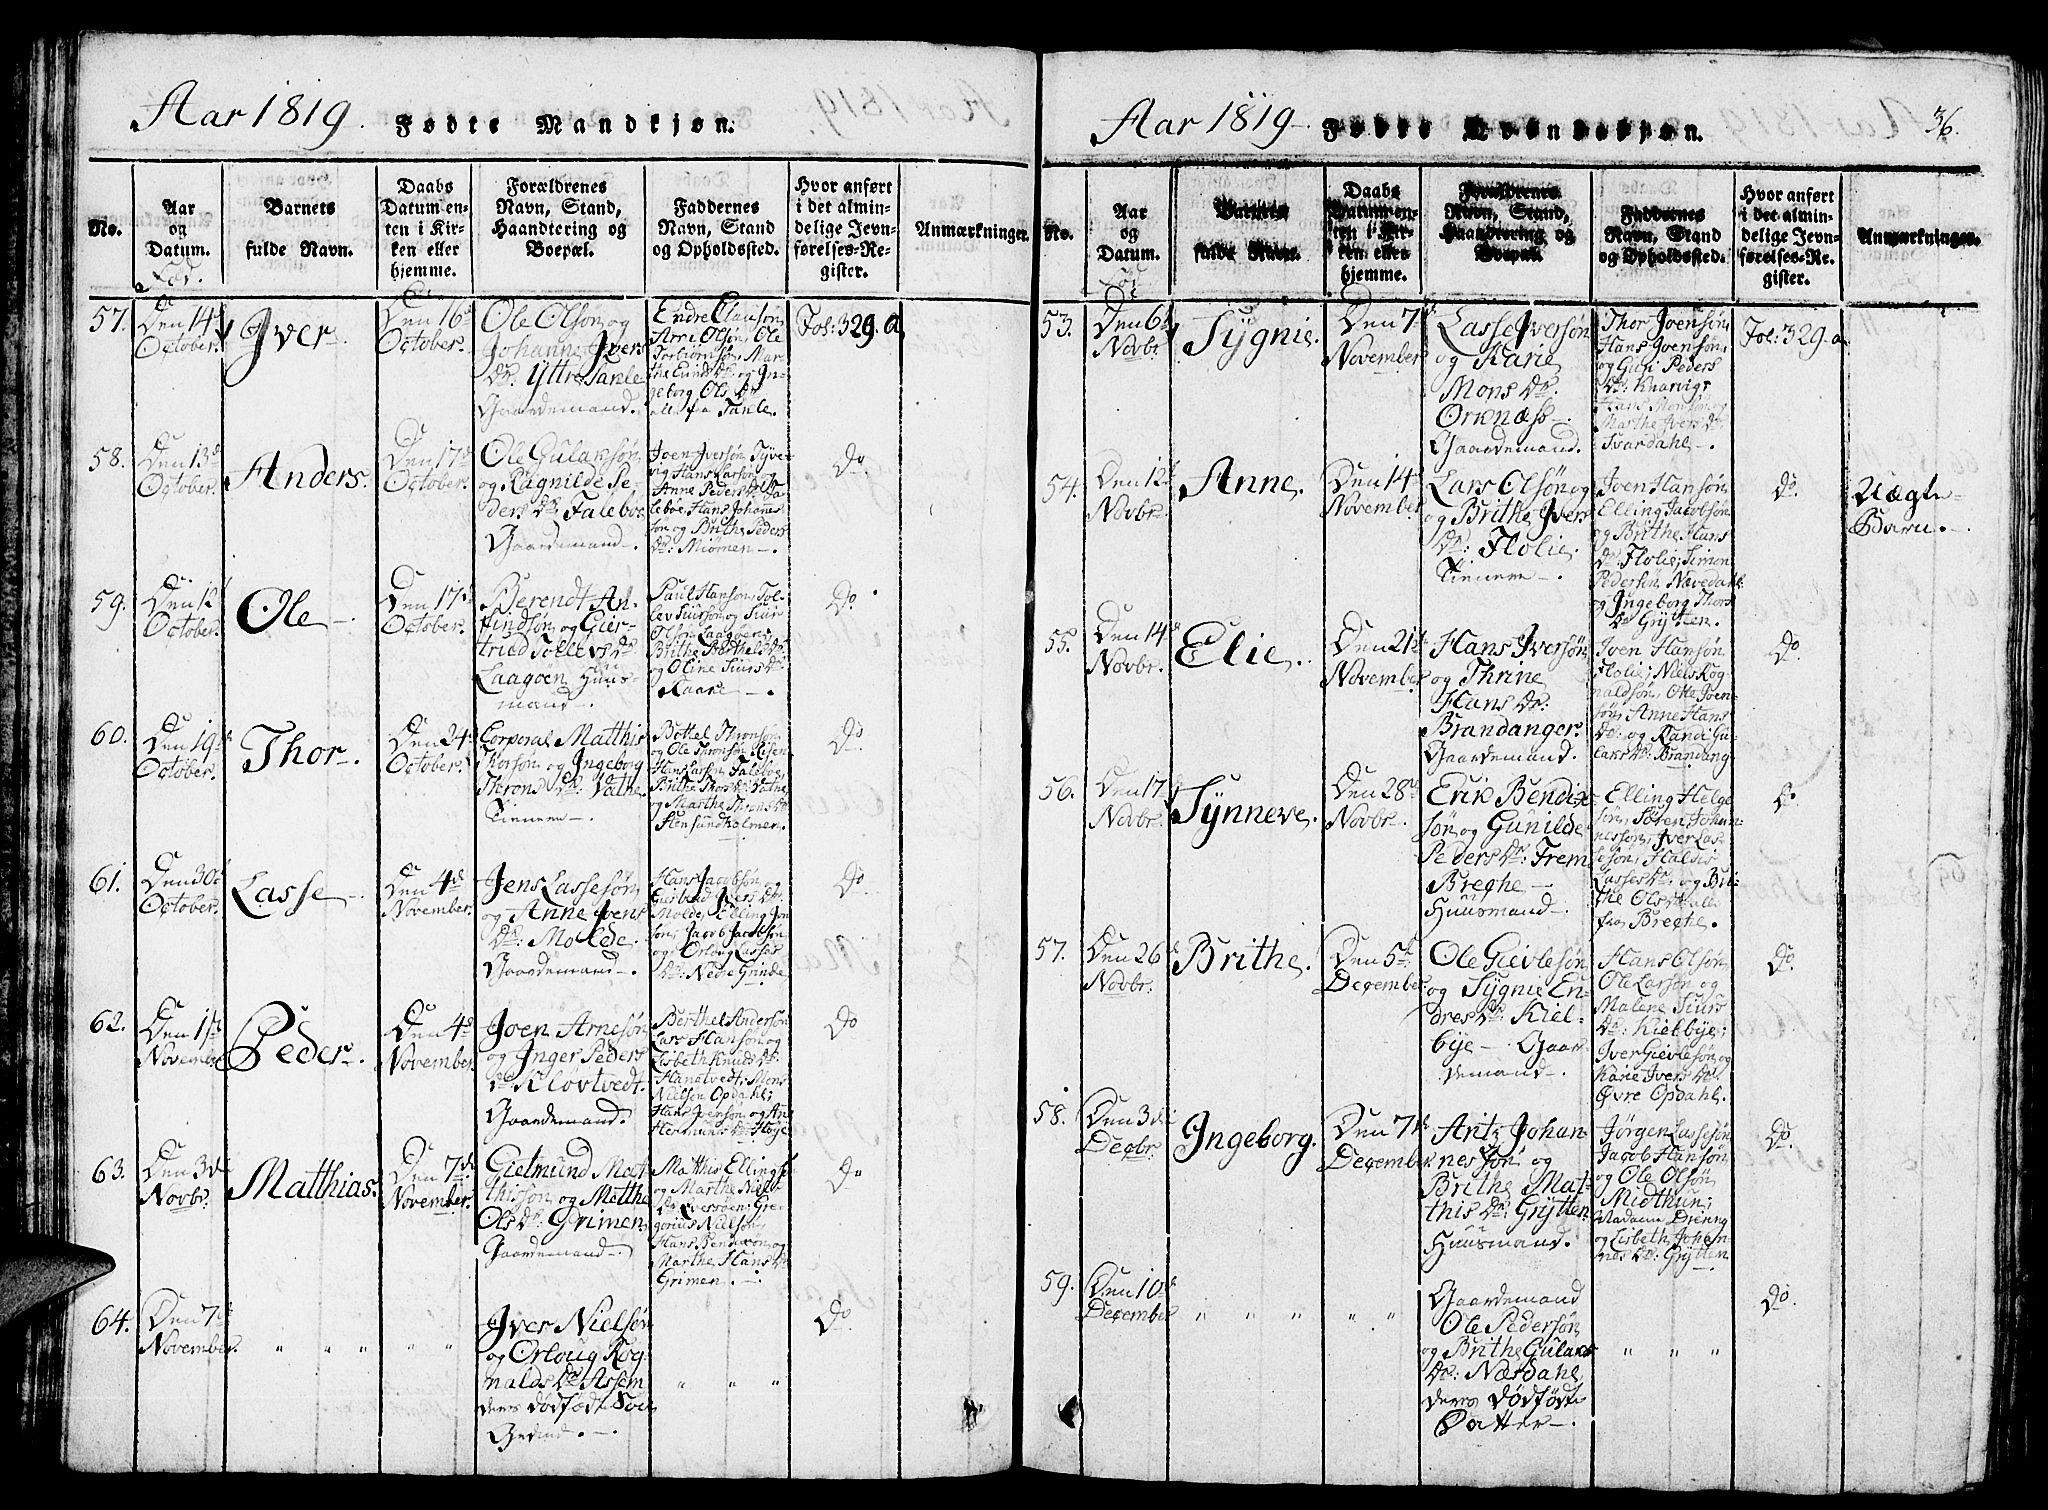 Aar 1819. Fødte Mandkjøn.
No.
Aar
og
Datum.
Fød.
Barnets
fulde Navn.
Daabs
Datum en-
ten i Kir-
ken eller
hjemme.
Forældrenes
Navn, Stand,
Haandtering og
Boepæl.
Faddernes
Navn, Stand
og Opholdssted.
Hvor anført
i det almin-
delige Jevn-
førelses-Re-
gister.
Anmærkninger.
57.
Den 14de
October.
Iver
Den 16de
October.
Ole Olson og
Johanne Ivers
Dr: Yttre Tanle
Gaardemand.
Endre Clauson,
Arne Olsøn, Ole
Torbiørnson, Mar-
the Einds Dr: og In-
geborg Ols Dr
alle fra Tanle.
Fol: 329. a
58.
Den 13de
October.
Anders.
Den 17de
October.
Ole Gulaksøn
og Ragnilde Pe-
ders Dr Faleboe
Gaardemand.
Joen Iversøn Tyve-
vig Hans Larson og
Anne Peders Dr Fa-
leboe Hans Johanes-
søn og Brithe Peders
Dr: Miømen.
Do
59.
Den 12te
October.
Ole
Den 17de
October.
Berendt An-
findson og Gier-
trud Tollevs Dr
Laagøen Huus-
mand.
Paul Hanson, Tol-
lev Siurson og Siur
Olson Laagøen,
Brithe Berthels Dr:
og Oline Siurs Dr:
Kaare
Do
60.
Den 19de
October.
Thor.
Den 24de
October.
Corporal Matthis
Thorson og Ingeborg
Throns Dr: Vathe
Tienere
Bottel Thronson
og Ole Thronson Risen
Hans Larson Faleboe,
Brithe Thors Dr: Vathe
og Marthe Throns Dr
Stensundholmen.
Do
61.
Den 30te
October.
Lasse
Den 4de
November.
Jens Lassesøn
og Anne Ivers
Dr: Molde.
Gaardemand.
Hans Jacobson
Giertrud Ivers Dr:
Molde, Elling Jon-
søn, Jacob Jacobson
og Orloug Lasses
Dr: Nedre Grinde
Do
62.
Den 1ste
November
Peder.
Den 4de
November.
Joen Arnesøn
og Inger Peders
Dr Kløvtvedt.
Gaardemand.
Berthel Anderson
Lars Hanson og
Lisbeth Knuds Dr:
Hanetvedt; Mons
Nielson Opdahl;
Hans Iverson og Ane
Hermunds Dr Høye
Do
63.
Den 3die
Novbr.
Matthias.
Den 7de
November.
Gietmund Mat-
thisson og Marthe
Ols Dr: Grimen
Gaardemand.
Matthis Ellings:
og Marthe Niels
Dr Lversøen; Gre-
gorius Nielson,
Hans Bendixon og
Marthe Hans Dr
Grimen.
Do
64.
Den 7de
November.
" " " " "
Iver Nielsøn
og Orloug Rog-
nalds Dr Assem
deres dødfødte Søn
" " "
Do
Aar 1819 Fødte Kvindekjøn. 36.
No.
Aar
og
Datum.
Barnets
fulde Navn.
Daabs
Datum en-
ten i Kir-
ken eller
hjemme.
Forældrenes
Navn, Stand,
Haandtering og
Boepæl.
Faddernes
Navn, Stand
og Opholdssted.
Hvor anført
i det almin-
delige Jevn-
førelses-Re-
gister.
Anmærkninger.
53.
Den 6te
Novbr.
Sygnie.
Den 7de
November
Lasse Iversøn
og Karie
Mons Dr:
Ornæss.
Gaardemand.
Thor Joensøn,
Hans Joensøn,
og Guri Peders
Dr: Knarvig;
Hans Monsøn og
Marthe Ivers Dr:
Svardahl.
Fol: 329. a
54.
Den 12te
Novbr.
Anne.
Den 14de
November
Lars Olsøn og
og Brithe Ivers
Dr: Flolie.
Tienere
Iven Hansøn,
Elling Jacobsøn
og Brithe Hans
Dr Flolie; Simon
Pederson Nævedahl
og Ingeborg Thors
Dr Grytten.
Do
Uægte
Barn.
55.
Den 14de
Novbr.
Elie.
Den 21de
November
Hans Iversøn
og Thrine
Hans Dr:
Brandanger.
Gaardemand.
Iven Hansøn
Flolie; Niels Rog-
naldson, Ole Joen-
søn, Anne Hans
Dr: og Randi Gu-
lacs Dr: Brandang
Do
56.
Den 17de
Novbr.
Synneve.
Den 28de
Novbr.
Erik Bendix-
søn og Gunilde
Peders Dr: Frem
Breche
Huusmand.
Elling Helge
søn, Søren Johan-
nessøn, Iver Las-
sesøn,
Lasses Dr. og Bri-
the Ols Dr alle
fra Breche.
Do
57.
Den 26de
Novbr.
Brithe.
Den 5te
December
Ole Gievlesøn
og Sygnie En-
dres Dr: Kiel-
bye. Gaar-
demand.
Hans Olsøn,
Ole Larsøn og
Malene Siurs
Dr: Kielbye;
Iver Gievlesøn og
Karie Ivers Dr.
Øvre Opdahl.
Do
58.
Den 3die
Decbr.
Ingeborg.
Den 7de
December
Antz Johan-
nessøn og
Brithe Mat-
this Dr: Grytten
Huusmand.
Jørgen Lassesøn
Jacob Hansøn
og Ole Olsøn
Midthun;
Madame Dreing
og Lisbeth Johan-
nes Dr: Grytten
Do
59.
Den 10de
December
" " " " "
Gaardemand
Ole Pedersøn
og Brithe Gulaks
Dr: Næsdahl,
deres dødfødte
Datter.
" " "
Do